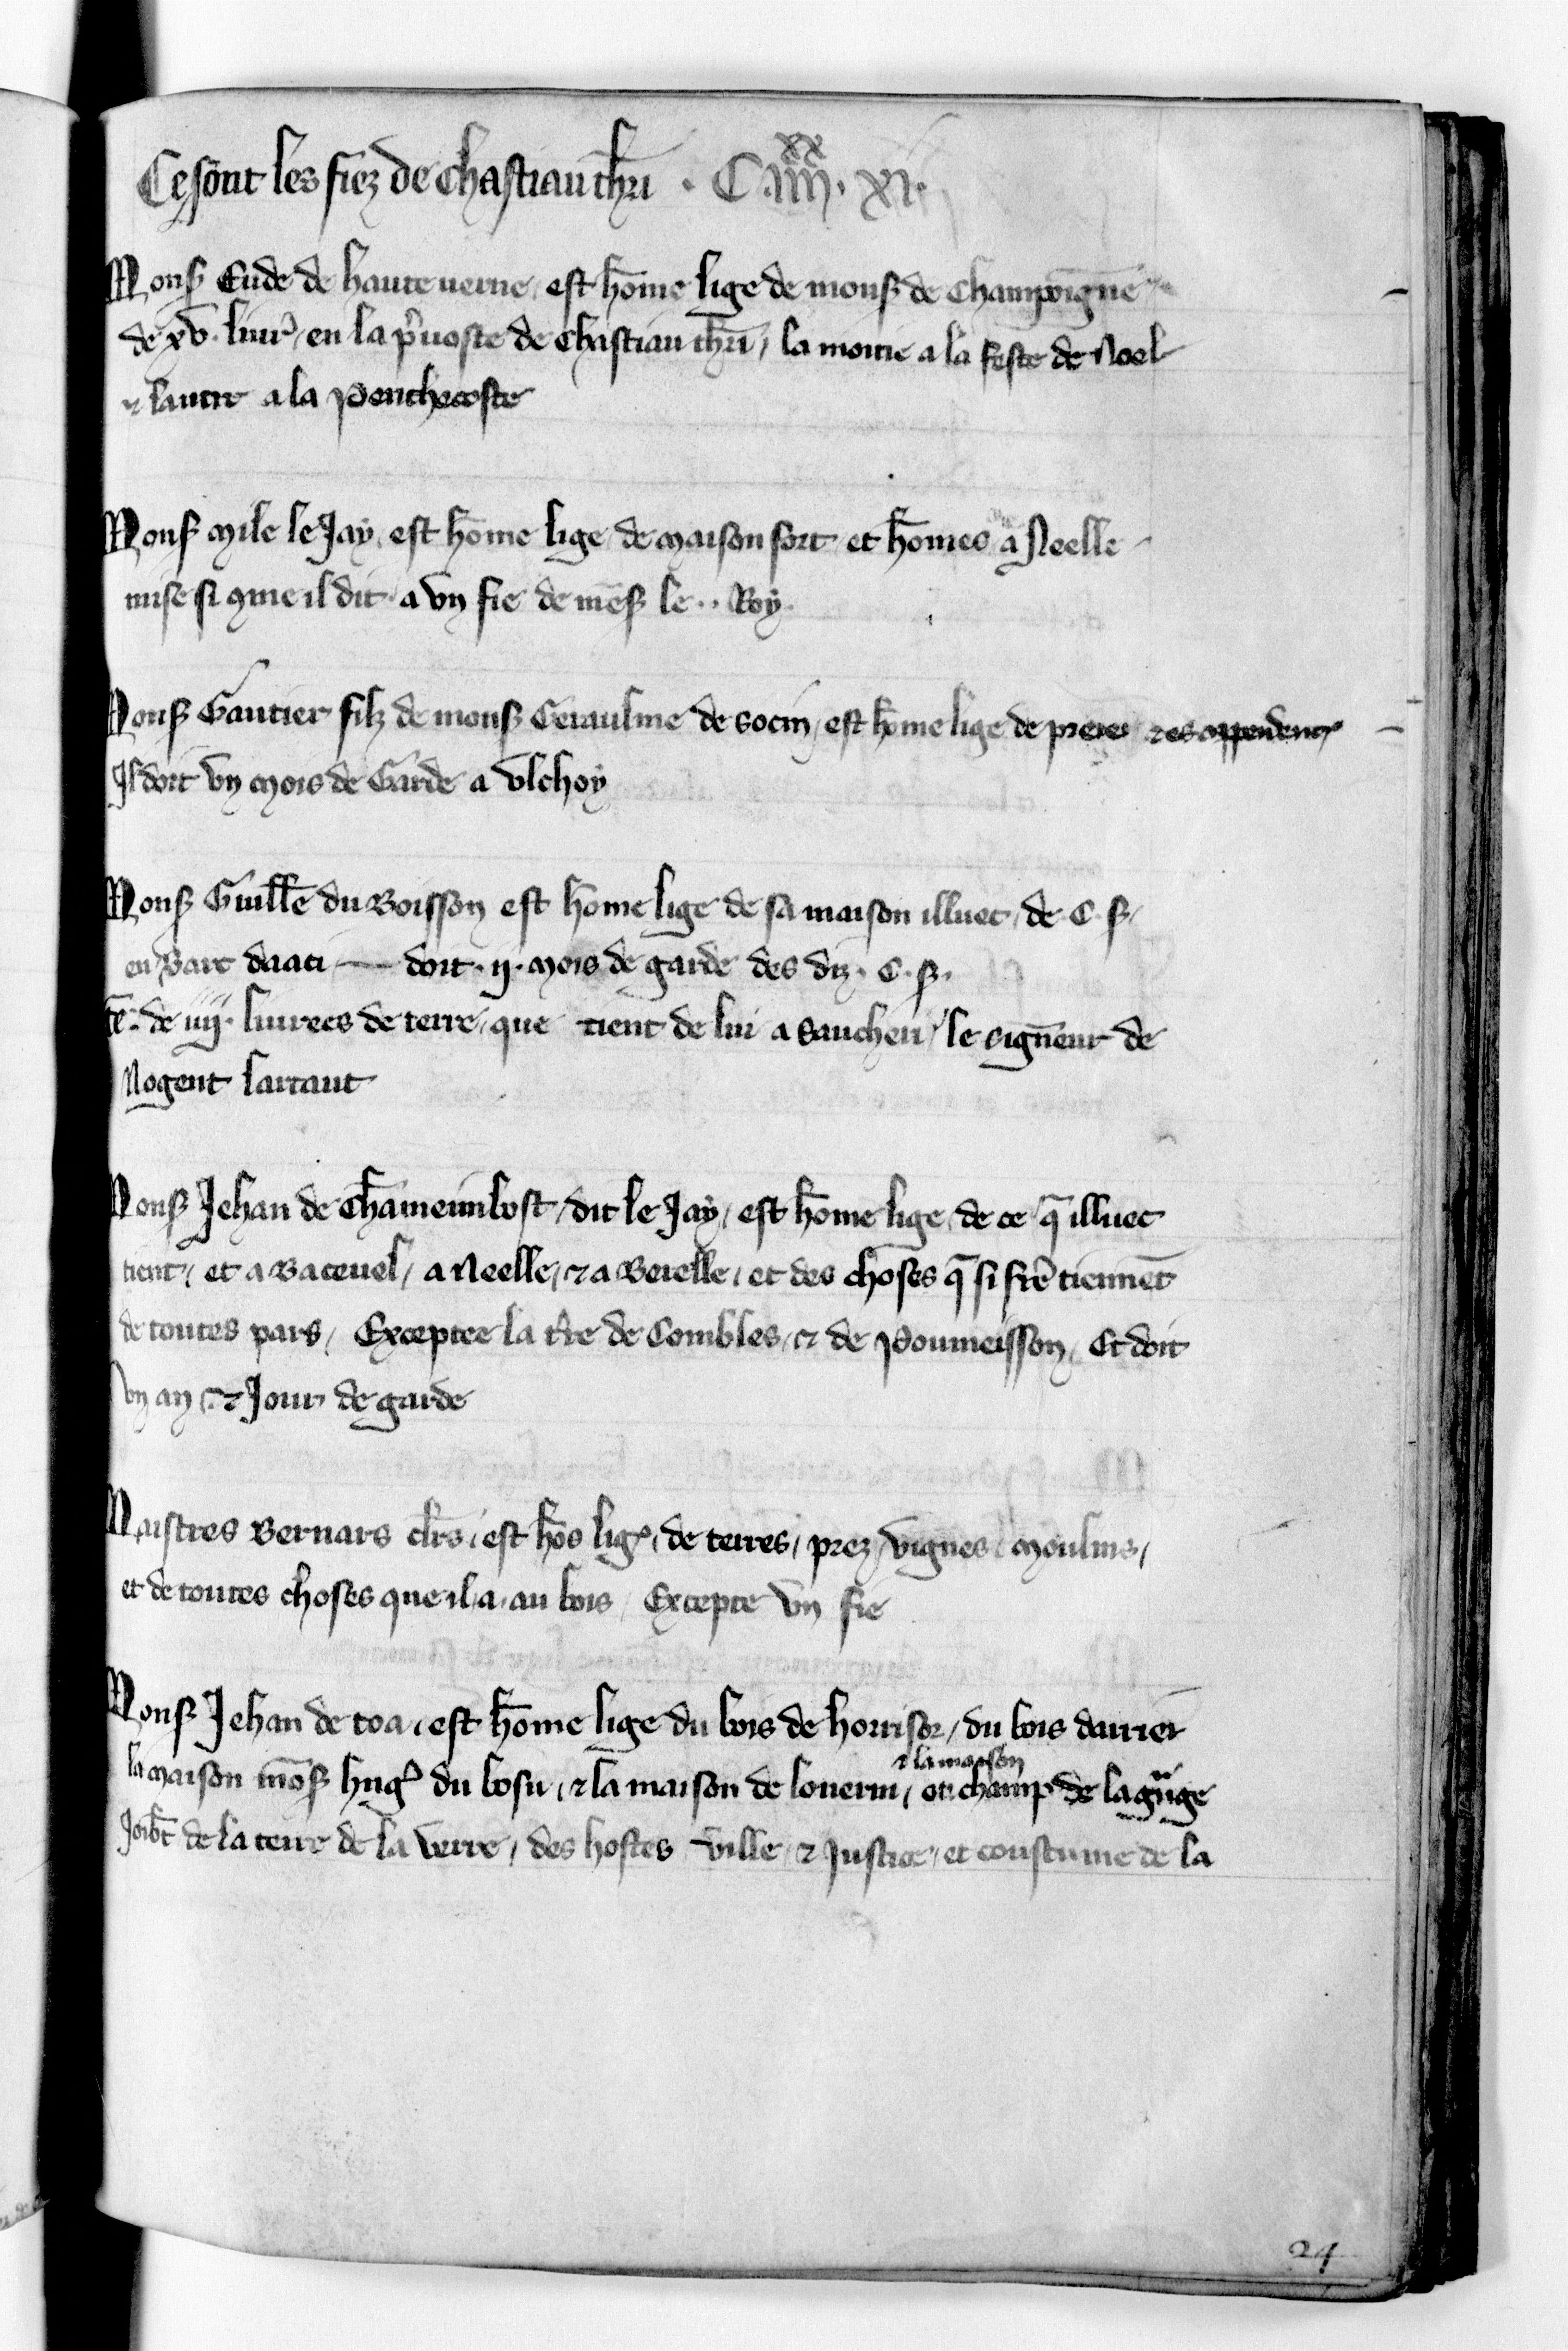 Ce sont les fiez de Chastiau thri · C iiii xx · xi ·
Mons Eude de hauteuerne / est hōme lige de mons de Champoigne
de xv · liur / en la puoste de Chastiau thri / la moitie a la feste de Noel
⁊ lautre a la Penthecoste
Mons Mile le Jay / est hōme lige de Maison fort et hōmes a Neelle
mise si 9me il dit a vn fie de mons le ·· Roy ·
Mons Gautier filz de mons Ceraulme de socin / est hōme lige de
Il doit vn Mois de Garde a vlchoy
Mons Guille du Boisson est hōme lige de sa maison illuec / de · C · s ·
en Bait daati — doit · ij · Mois de garde des diz · C · s ·
de iiij · liurees de terre / que tient de lui a saucheri / le signeur de
Nogent lartaut
Mons Jehan de Chamemlost / dit le Jay / est hōme lige / de ce q̄ illuec
tient / et a Bateuel / a Neelle / ⁊ a Berelle / et des choses q̄ si fre tiennēt
de toutes pars / Exceptee la tre de Combles / ⁊ de Poumeisson / Et doit
vn an ⁊ Jour de garde
Maistres Bernars clrs / est hōs lig / de terres / prez / vignes / Moulins /
et de toutes choses que il a au bois / Excepte vn fie
Mons Jehan de toa / est hōme lige du bois de horrisor / du bois darrier
⁊ la maison
la Maison mōs hug du bosu / ⁊ la maison de louerin / ou champ de la gnge
de la terre de la verre / des hostes ville / ⁊ Justice / et coustume de la
24